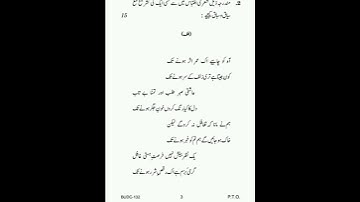 مندرجہ ذیل شعری اقتباس میں سے کسی ایک کی تشریح مع
سیاق و سباق کیجیے : 15
(الف)
آہ کو چاہیے اک عمر اثر ہونے تک
کون جیتا ہے تری زلف کے سر ہونے تک
عاشقی صبر طلب اور تمنا بے تاب
دل کا کیا رنگ کروں خون جگر ہونے تک
ہم نے مانا کہ تغافل نہ کرو گے لیکن
خاک ہو جائیں گے ہم تم کو خبر ہونے تک
یک نظر بیش نہیں فرصت ہستی غافل
گرمی بزم ہے اک رقص شرر ہونے تک
3 P.T.O.